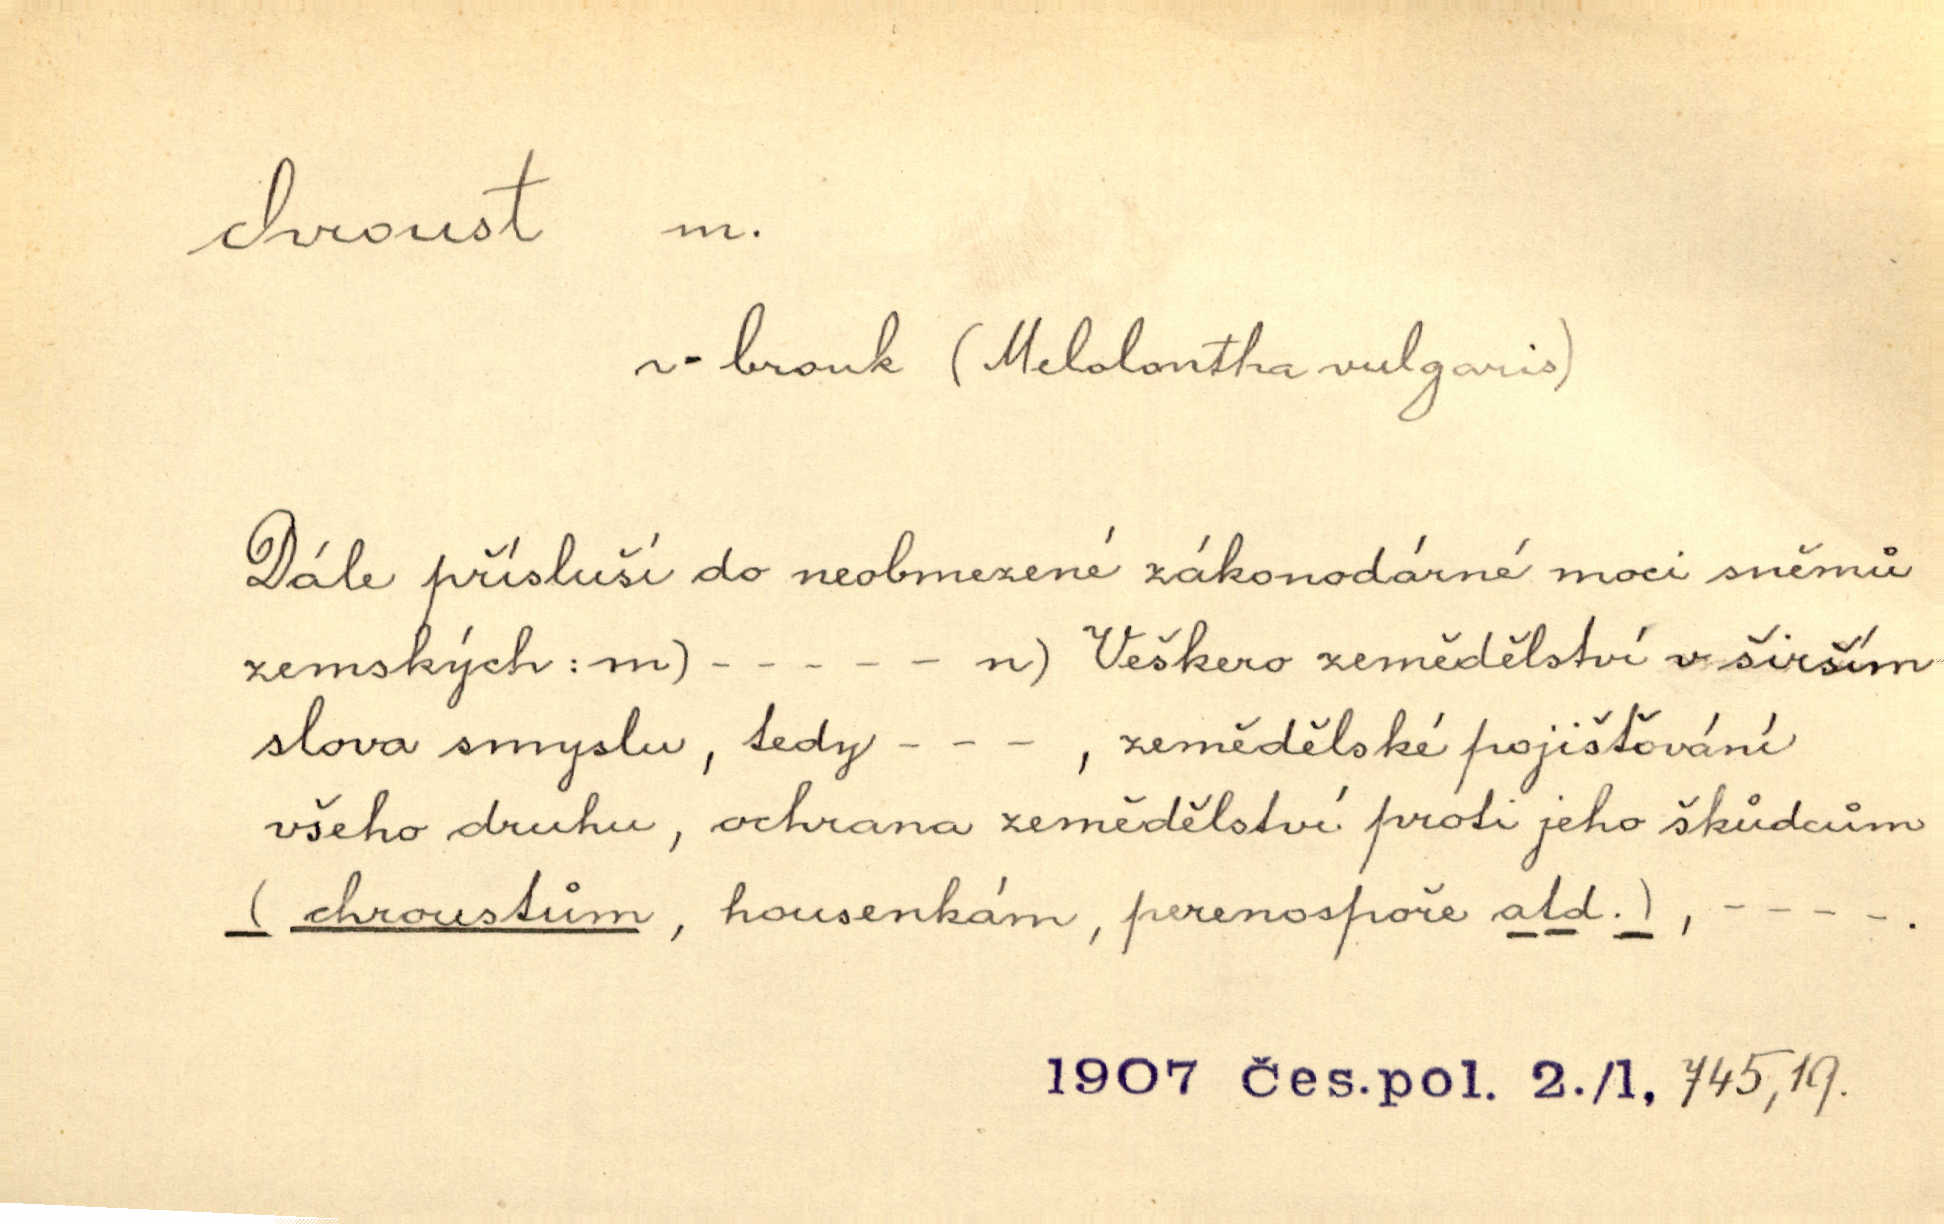 chroust m.
v- brouk (Melolontha vulgaris)
Dále přísluší do neobmezené zákonodárné moci sněmů
zemských: m) - - - - - n) Veškero zemědělství v širším
slova smyslu, tedy - - - , zemědělské pojišťování
všeho druhu, ochrana zemědělství proti jeho škůdcům
( chroustům, housenkám, perenospoře atd.), - - - -.
1907 Čes.pol. 2./1, 745,19.